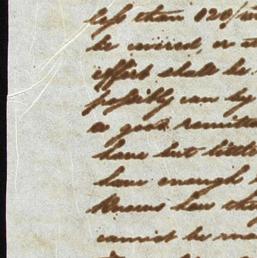 less than 120/m
be covered, or
effort shall be
possibly can by
a good remitta
have but little
have enough
Knows how the
cannot be ma